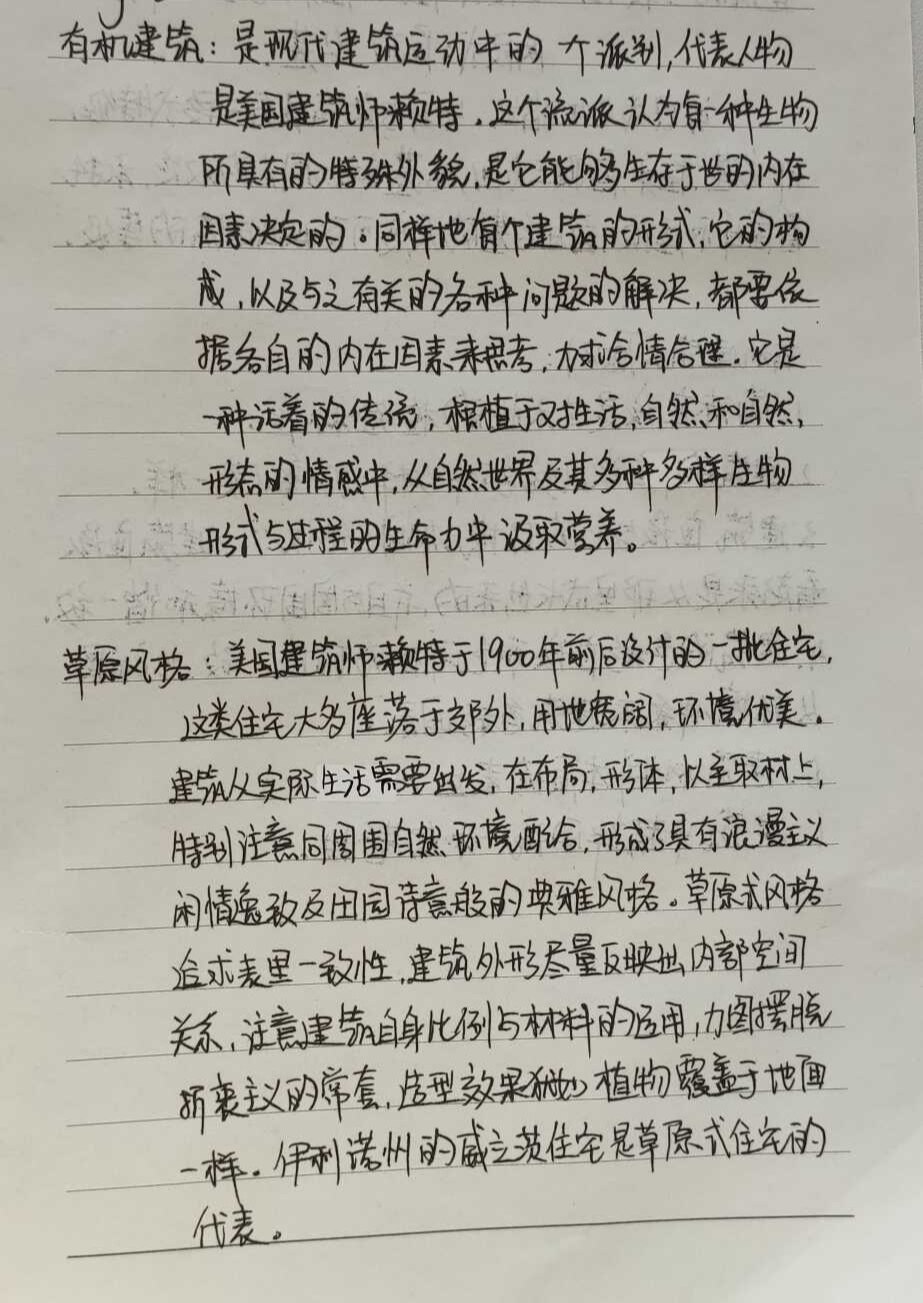 有机建筑：是现代建筑运动中的一个派别，代表人物
是美国建筑师赖特。这个流派认为每一种生物
所具有的特殊外貌，是它能够生存于世的内在
因素决定的。同样地每个建筑的形式，它的构
成，以及与之有关的各种问题的解决，都要依
据各自的内在因素来思考，力求合情合理。它是
一种活着的传统，根植于对生活，自然和自然，
形态的情感中，从自然世界及其多种多样生物
形式与过程的生命力中汲取营养。
草原风格：美国建筑师赖特于1900年前后设计的一批住宅，
这类住宅大多座落于郊外，用地宽阔，环境优美。
建筑从实际生活需要出发，在布局，形体，以至取材上，
特别注意同周围自然环境配合，形成了具有浪漫主义
闲情逸致及田园诗意般的典雅风格。草原式风格
追求表里一致性，建筑外形尽量反映出内部空间
关系，注意建筑自身比例与材料的运用，力图摆脱
折衷主义的常套，造型效果犹如植物覆盖于地面
一样。伊利诺州的威立茨住宅是草原式住宅的
代表。